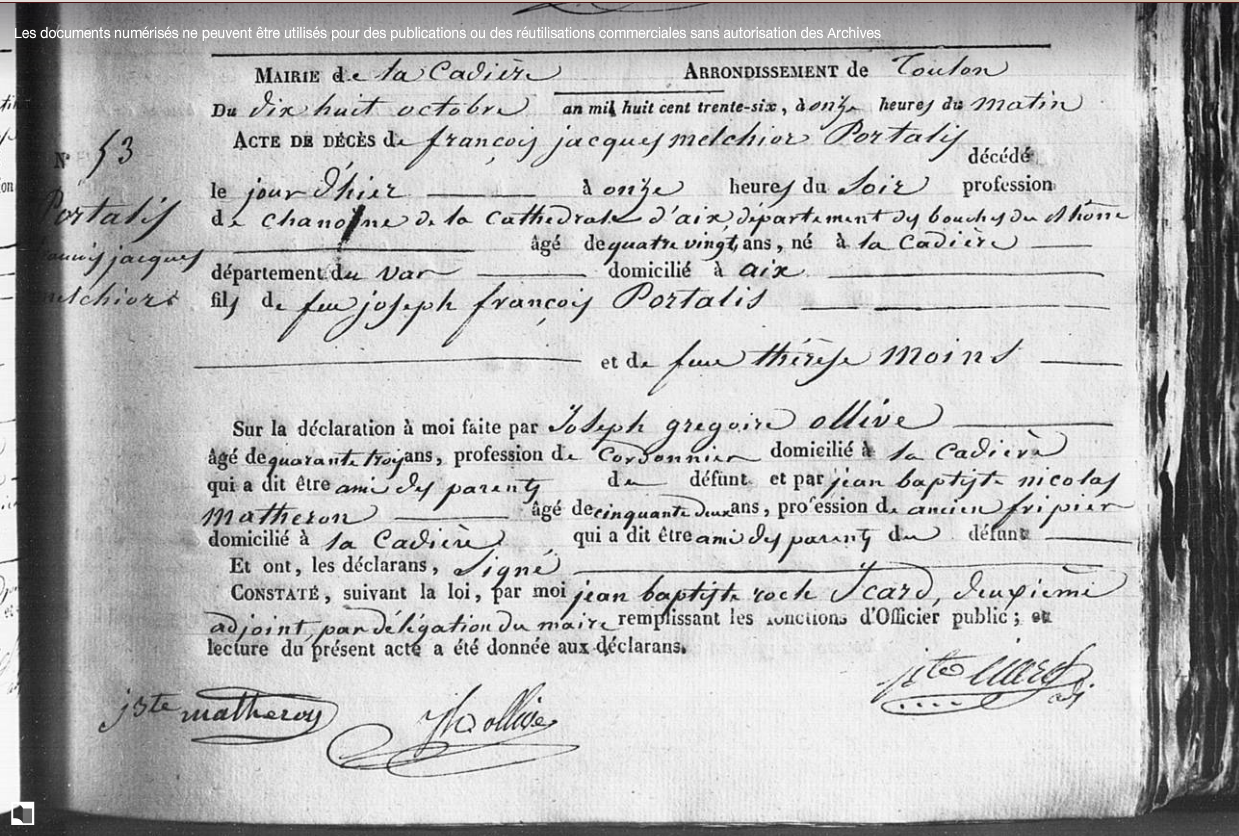 Les documents numérisés ne peuvent être utilisés pour des publications ou des réutilisations commerciales sans autorisation des Archives
MAIRIE de la Cadière ARRONDISSEMENT de Toulon
Du dix huit octobre an mil huit cent trente-six, à onze heures du matin
ACTE DE DÉCÈS de françois jacques melchior Portalis
décédé
N° 53
le jour d'hier à onze heures du soir profession
Portalis
de chanoine de la Cathedrale d'aix, département des bouches du Rhône
âgé de quatre vingt ans, né à la Cadière
françois jacques
département du var domicilié à aix
melchior
fils de feu joseph françois Portalis
et de feue thérèse Moins
Sur la déclaration à moi faite par Joseph gregoire ollive
âgé de quarante trois ans, profession de Cordonnier domicilié à la Cadière
qui a dit être ami des parents du défunt et par jean baptiste nicolas
Matheron âgé de cinquante deux ans, profession d. ancien fripier
domicilié à la Cadière qui a dit être ami des parents du défunt
Et ont, les déclarans, signé
CONSTATÉ, suivant la loi, par moi jean baptiste roch Icard, deuxième
adjoint, par délégation du maire remplissant les fonctions d'Officier public; et
lecture du présent acte a été donnée aux déclarans.
jbte matheron
jh ollive
jbte icard
adj